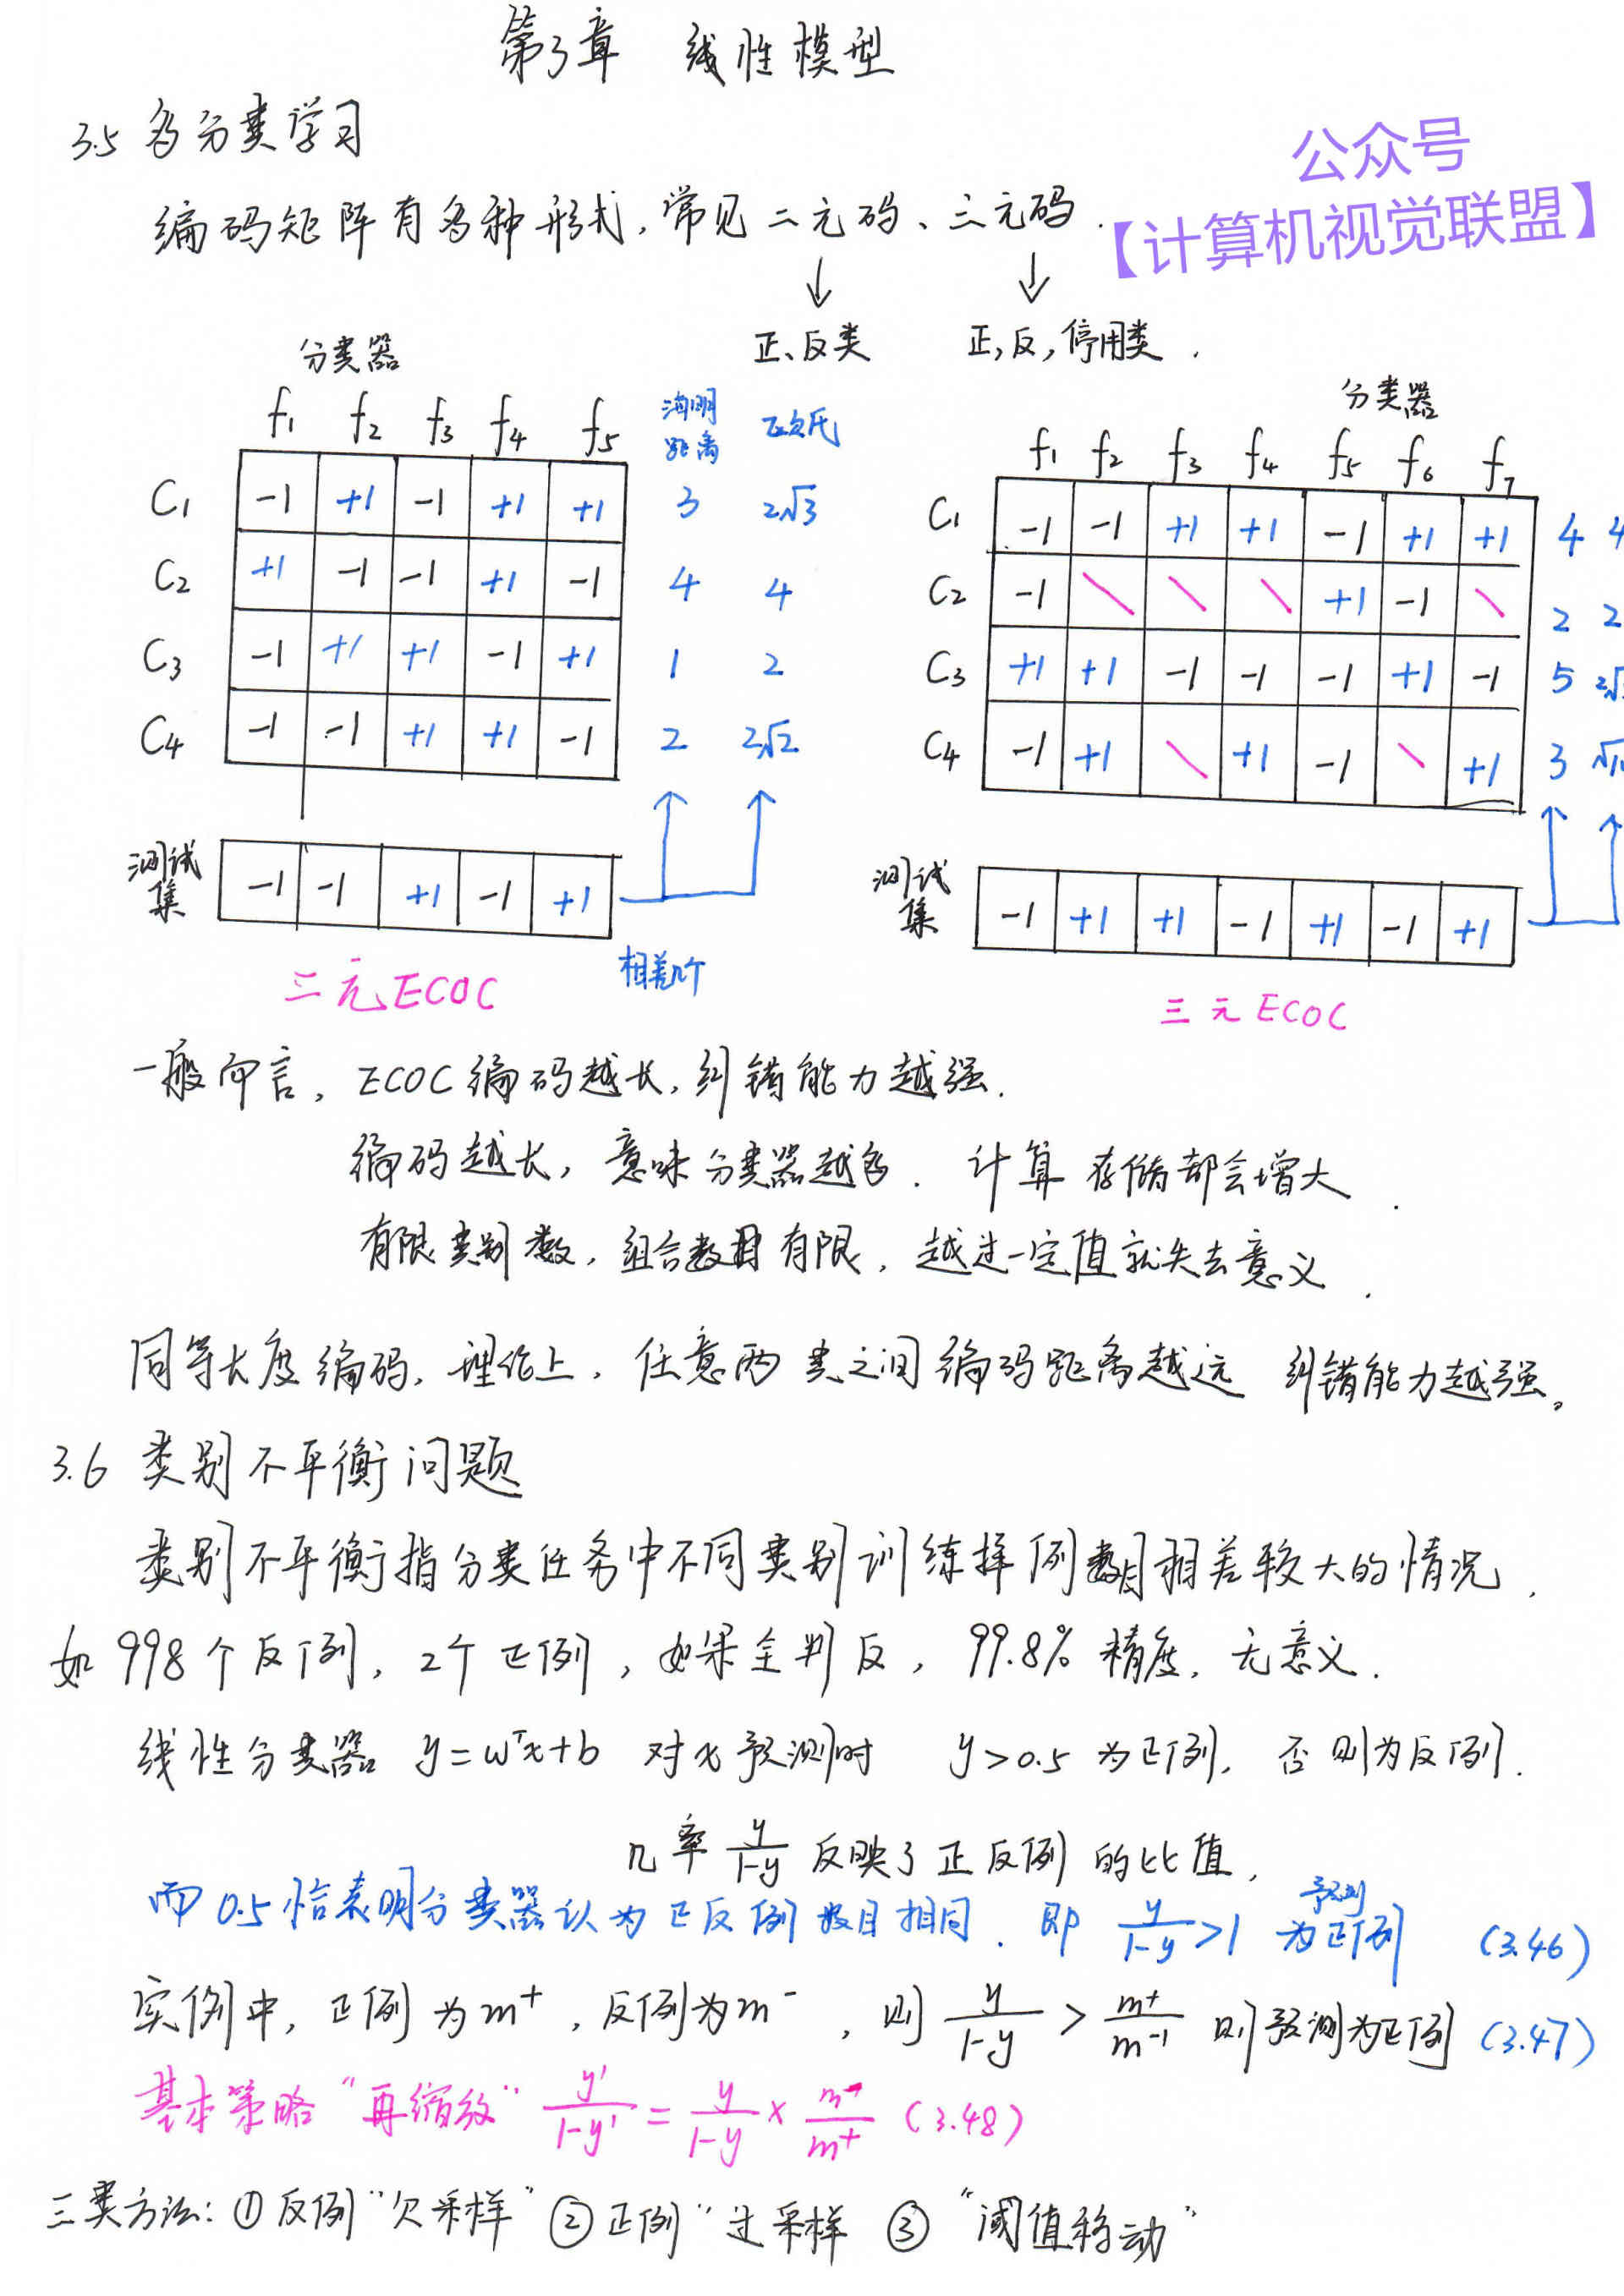 第3章 线性模型
3.5 多分类学习
公众号
【计算机视觉联盟】
编码矩阵有多种形式,常见二元码、三元码.
↓ ↓
正、反类 正,反,停用类.
分类器
f1 f2 f3 f4 f5 海明距离 欧氏
C1 -1 +1 -1 +1 +1 3 2√3
C2 +1 -1 -1 +1 -1 4 4
C3 -1 +1 +1 -1 +1 1 2
C4 -1 -1 +1 +1 -1 2 2√2
测试集 -1 -1 +1 -1 +1
相差几个
二元ECOC
分类器
f1 f2 f3 f4 f5 f6 f7
C1 -1 -1 +1 +1 -1 +1 +1 4 4
C2 -1 \ \ \ +1 -1 \ 2 2
C3 +1 +1 -1 -1 -1 +1 -1 5 2√
C4 -1 +1 \ +1 -1 \ +1 3 √1
测试集 -1 +1 +1 -1 +1 -1 +1
三元ECOC
一般而言, ECOC编码越长,纠错能力越强.
编码越长, 意味分类器越多. 计算存储都会增大.
有限类别数,组合数目有限,越过一定值就失去意义.
同等长度编码,理论上,任意两类之间编码距离越远 纠错能力越强。
3.6 类别不平衡问题
类别不平衡指分类任务中不同类别训练样例数目相差较大的情况.
如998个反例, 2个正例, 如果全判反, 99.8%精度, 无意义.
线性分类器 y=wᵀx+b 对x预测时 y>0.5为正例, 否则为反例.
几率 y/1-y 反映了正反例的比值,
而0.5恰表明分类器认为正反例数目相同. 即 y/1-y >1 预测为正例 (3.46)
实例中, 正例为m⁺, 反例为m⁻, 则 y/1-y > m⁺/m⁻¹ 则预测为正例 (3.47)
基本策略"再缩放" y'/1-y' = y/1-y × m⁻/m⁺ (3.48)
三类方法: ①反例"欠采样" ②正例"过采样 ③"阈值移动"